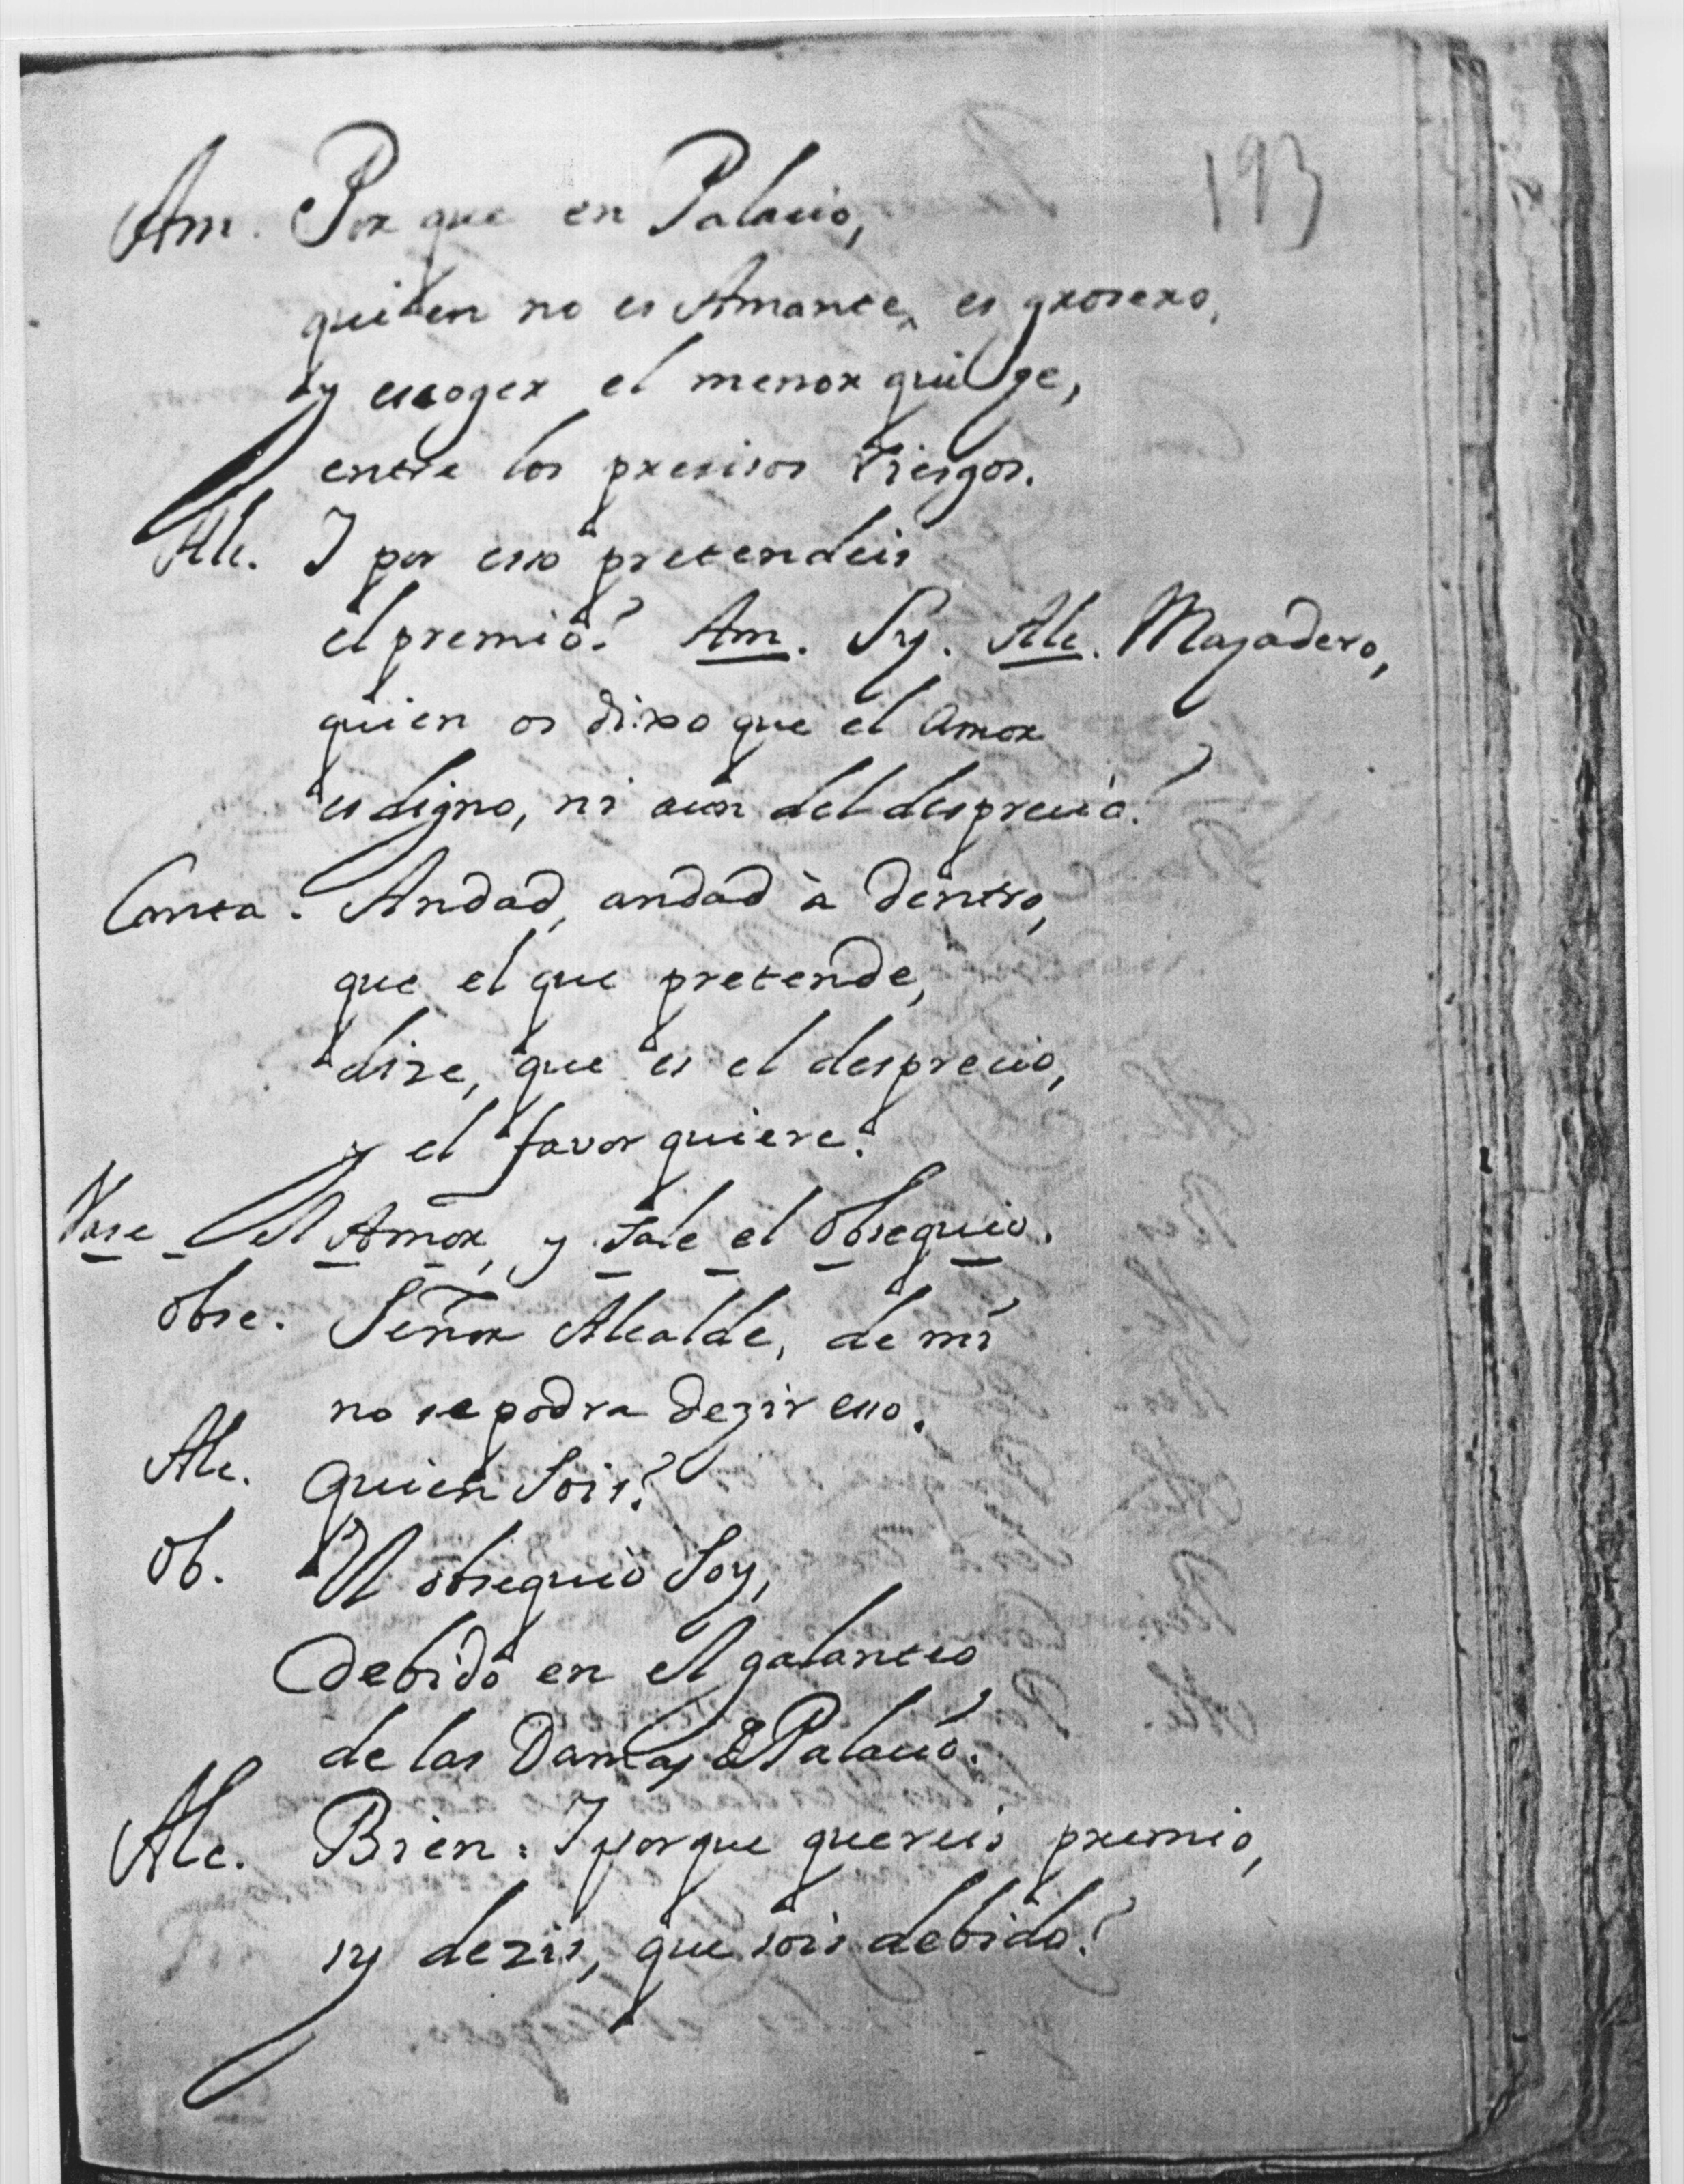 193
Am. Por que en Palacio,
quien no es Amante, es grosero,
y escoger el menor quise,
entre los precisos riesgos.
Alc. I por esso pretendeis
el premio? Am. Sy. Alc. Majadero,
quien os dixo que el amor
es digno, ni aun del desprecio?
Canta. Andad, andad à dentro,
que el que pretende,
dize, que es el desprecio,
y el favor quiere.
Vase el Amor, y sale el obsequio.
obse. Señor Alcalde, de mi
no se podra dezir esso.
Alc. Quien sois?
Ob. El obsequio soy,
debido en el galanteo
de las Damas de Palacio.
Alc. Bien: I porque quereis premio,
sy dezis, que sois debido?